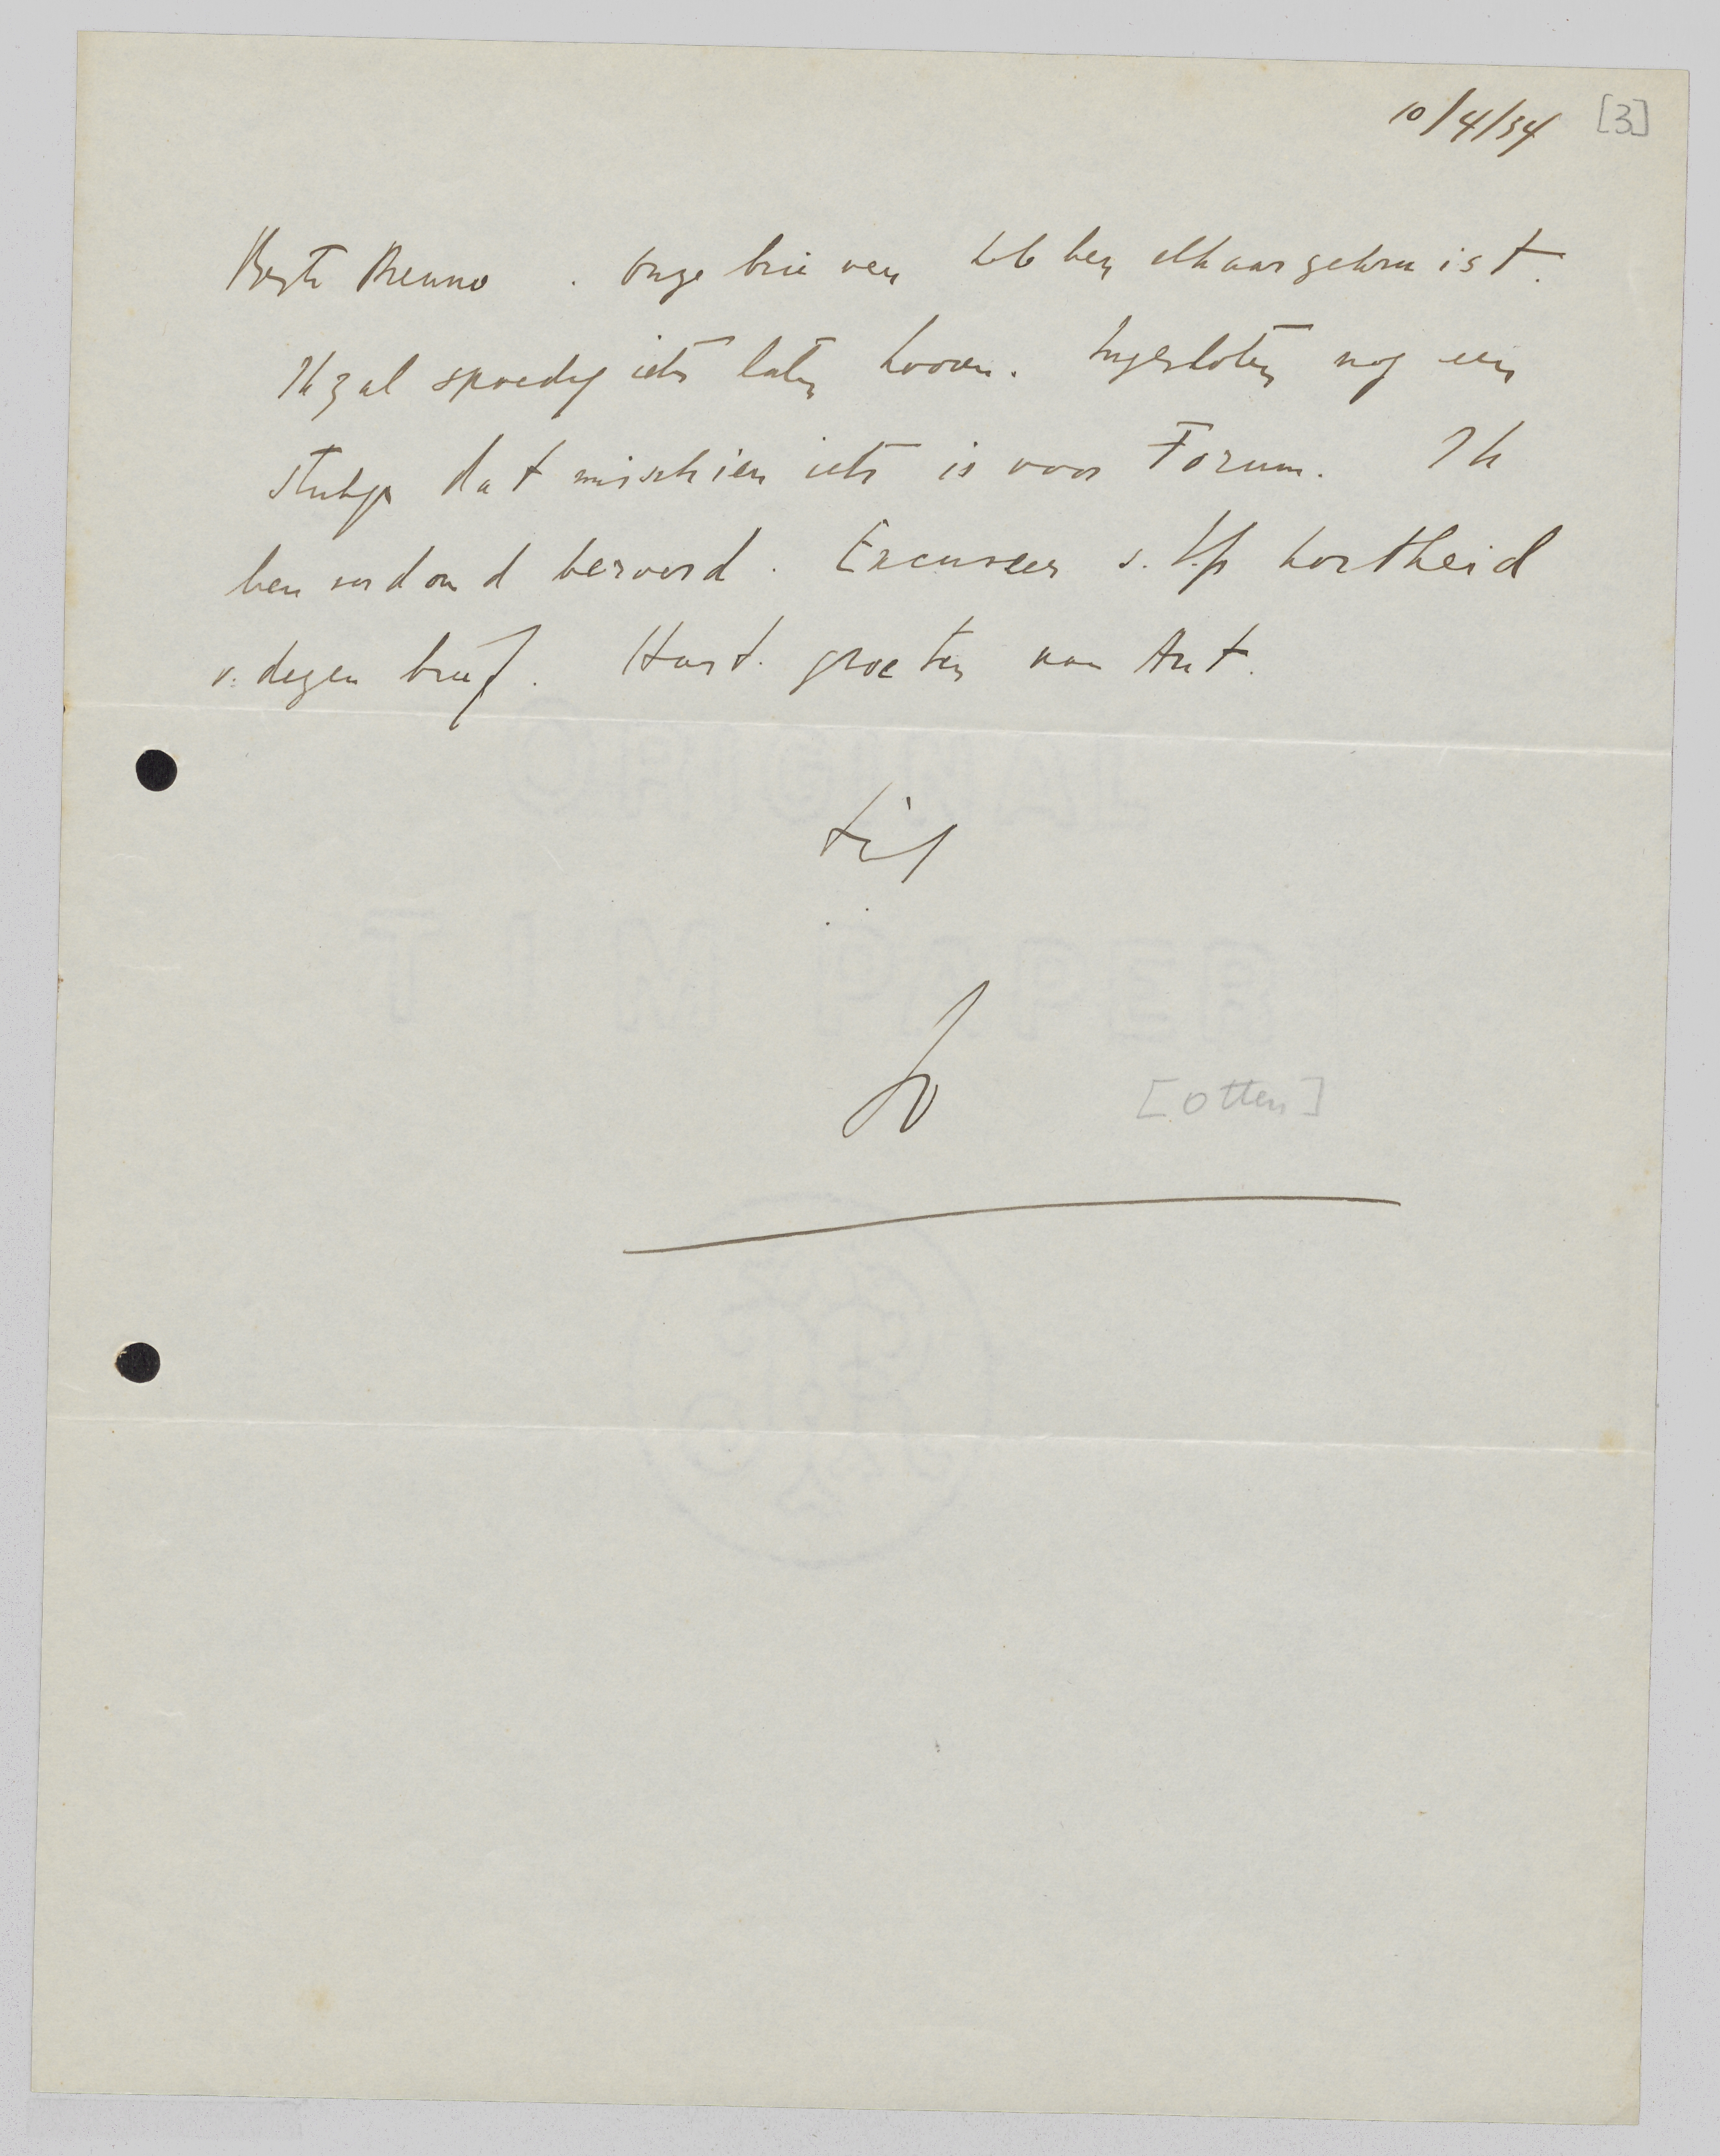 10/4/34 [3]
Beste Menno. Onze brieven hebben elkaar gekruist.
Ik zal spoedig iets laten hooren. Ingesloten nog een
stukje dat misschien iets is voor Forum. Ik
ben beroerd. Excuseer s.v.p kortheid
v. dezen brief. Hart. groeten van Ant.
Jo
[Otten]